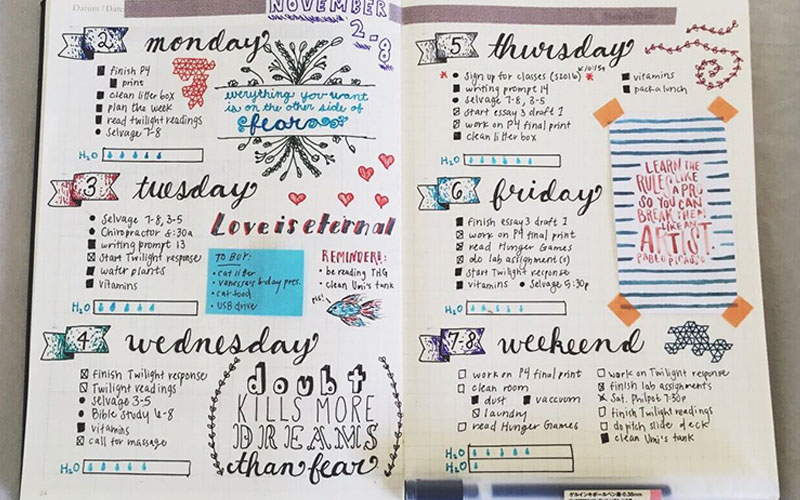 Datum / Date:
NOVEMBER
2-8
2 monday
finish P4
print
clean litter box
plan the week
read twilight readings
Selvage 7-8
H2O
everything you want
is on the other side of
fear
3 tuesday
Selvage 7-8, 3-5
Chiropractor 6:30a
writing prompt 13
Start Twilight response
water plants
vitamins
H2O
Love is eternal
TO BUY:
cat litter
vanessa's b-day pres.
cat food
USB drive
REMINDER!:
be reading THG
clean Umi's tank
4 wednesday
finish Twilight response
Twilight readings
Selvage 3-5
Bible Study 6-8
vitamins
call for massage
H2O
doubt
KILLS MORE
DREAMS
than fear
24
5 thursday
Sign up for classes (S2016)
writing prompt 14
Selvage 7-8, 3-5
Start essay 3 draft 1
work on P4 final print
clean litter box
vitamins
pack a lunch
H2O
LEARN THE
RULES LIKE
A PRO
SO YOU CAN
BREAK THEM
LIKE AN
ARTIST.
PABLO PICASSO
6 friday
finish essay 3 draft 1
work on P4 final print
read Hunger Games
do lab assignment(s)
start Twilight response
vitamins
Selvage 5:30p
H2O
7-8 weekend
work on P4 final print
clean room
dust
vaccuum
laundry
read Hunger Games
work on Twilight response
finish lab assignments
Sat. Philpot 7:30p
finish Twilight readings
do pitch slide deck
clean Umi's tank
H2O
H2O
ゲルインキボールペン
0.38mm